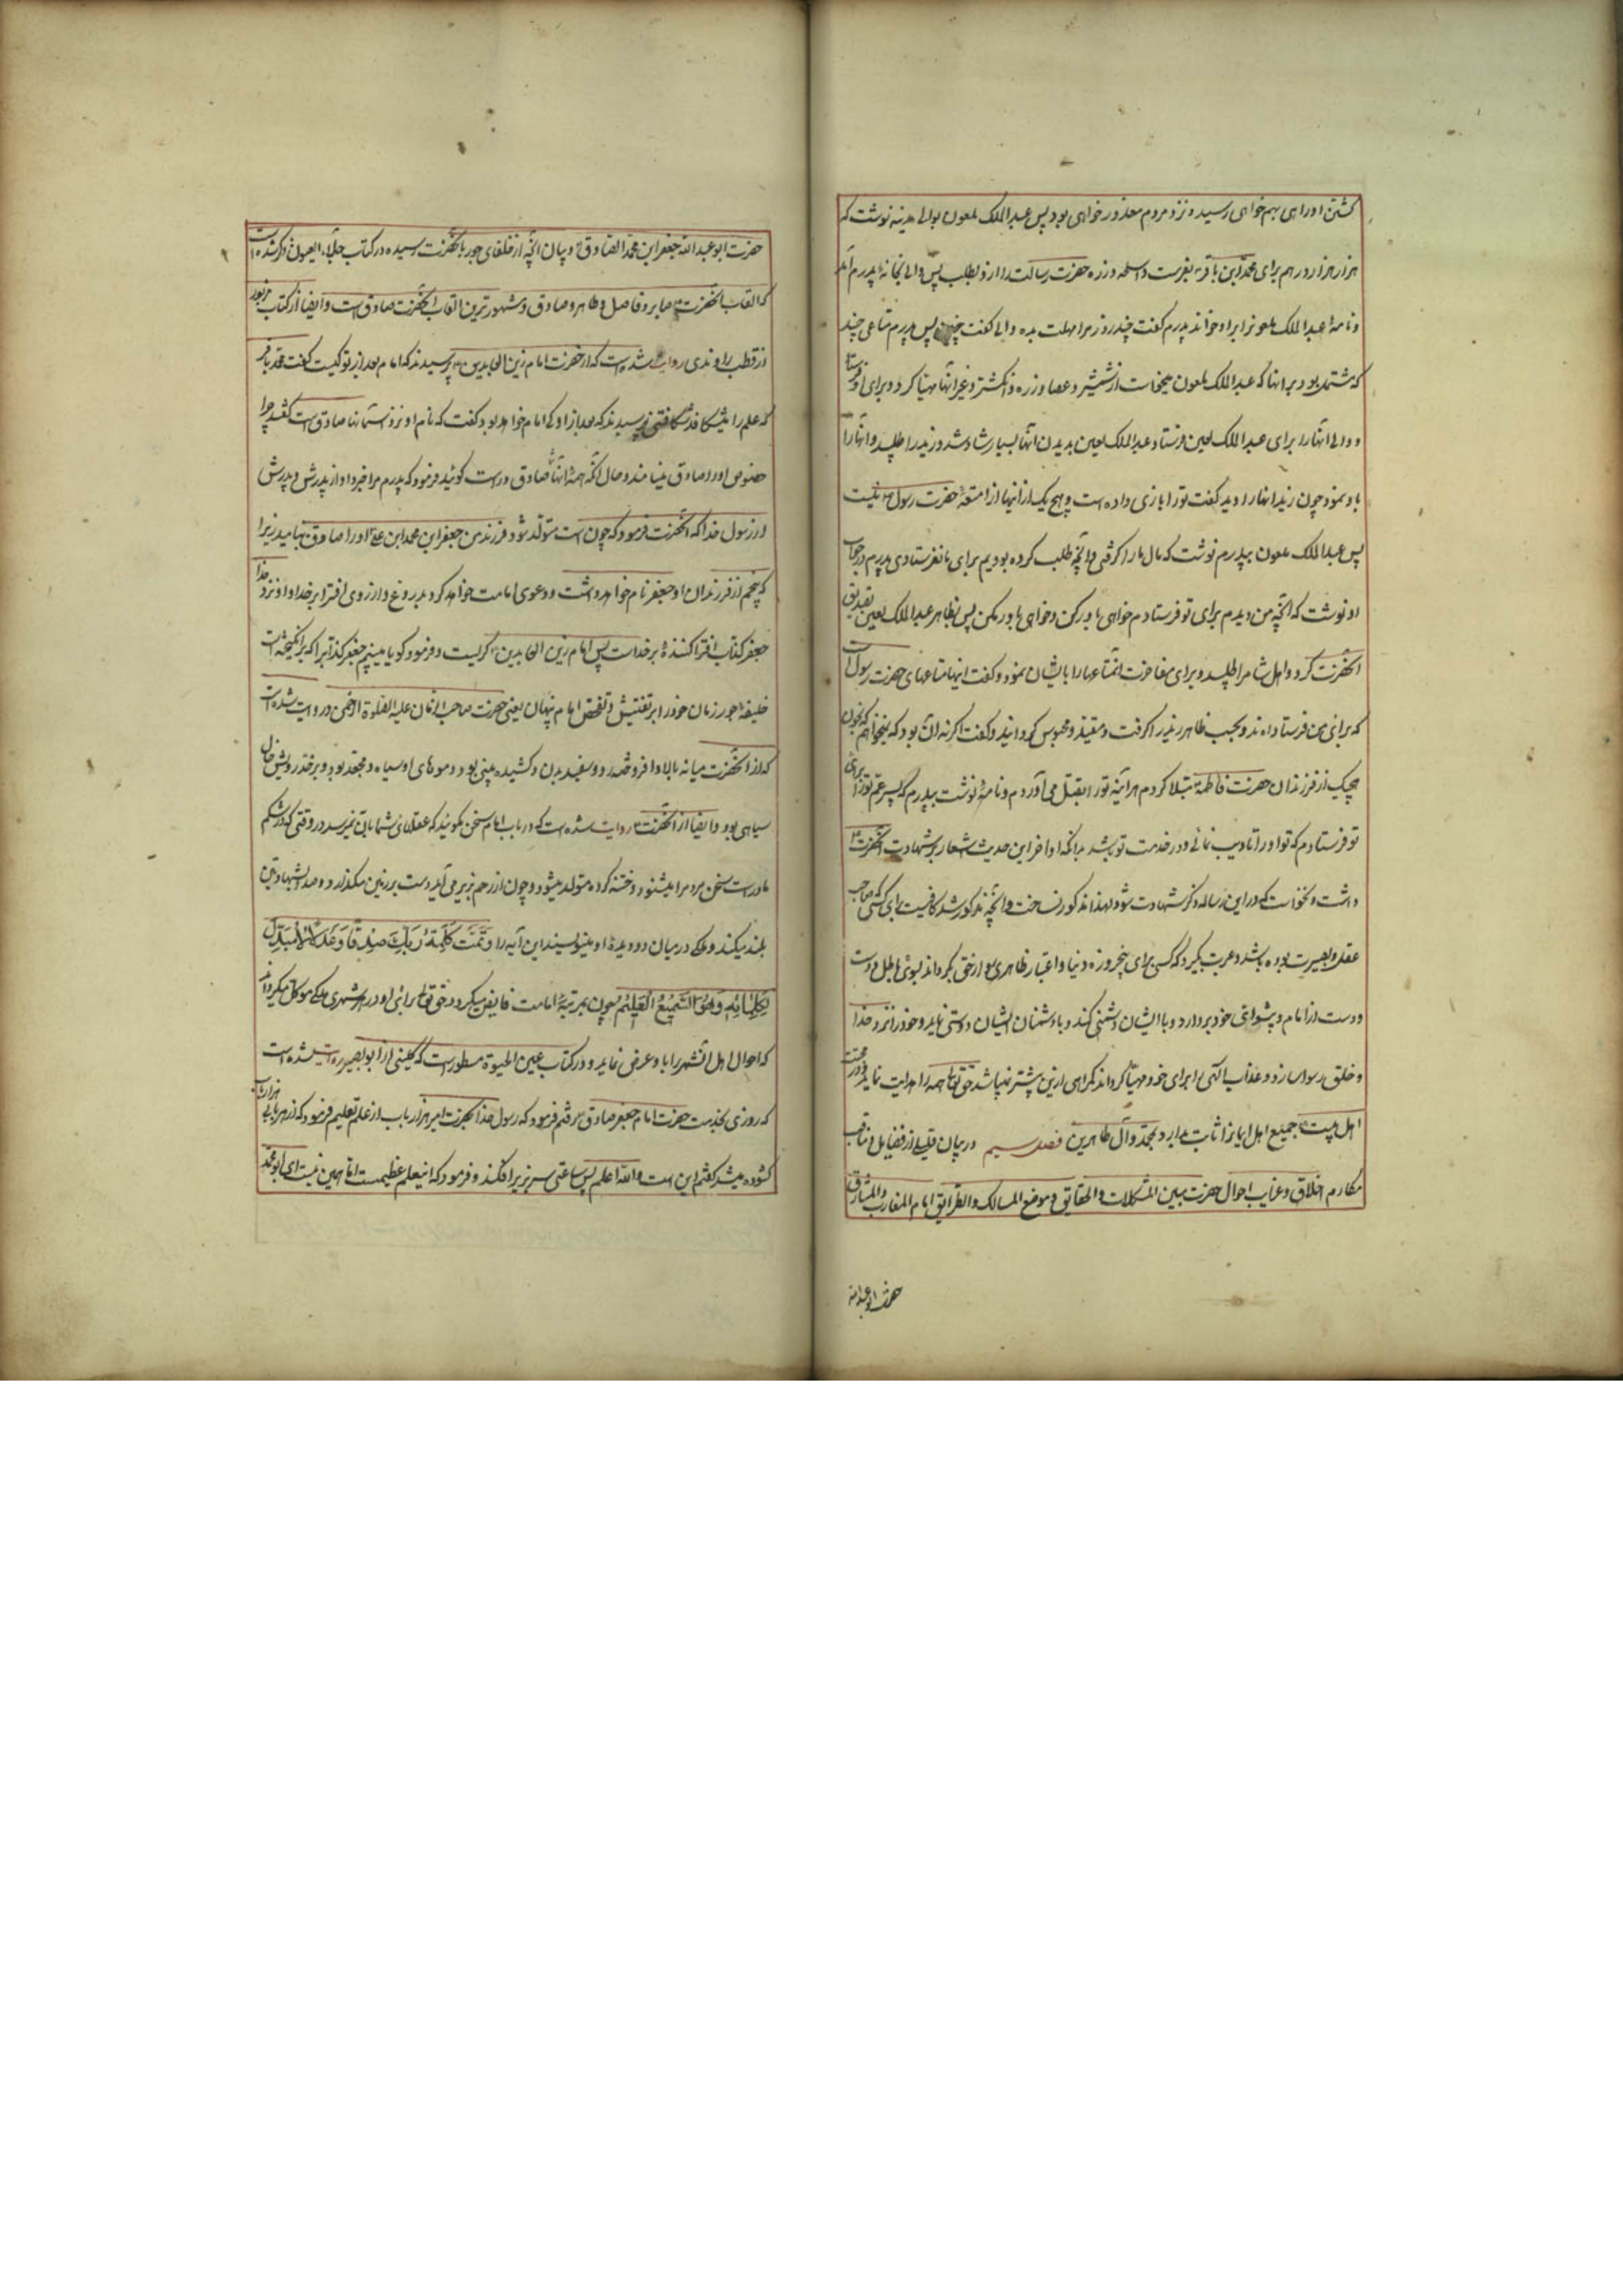 کشتن او راهی بهم خواهی رسید و نزد مردم معذور خواهی بود پس عبدالملک ملعون بوالی مدینه نوشت که
هزار هزار درهم برای محمد ابن باقر بفرست و اسلحه و زره حضرت رسالت را از او بطلب پس والی بخانه پدرم آمد
و نامه عبدالملک ملعون را براو خواند پدرم گفت چند روز مرا مهلت بده والی گفت چنین پس پدرم متاعی چند
که مشتمل بود بر آنها که عبدالملک ملعون میخواست از شمشیر و عصا و زره و انکشتر و غیر آنها مهیا کرد و برای او فرستاد
و والی آنها را برای عبدالملک لعین فرستاد عبدالملک لعین بدیدن آنها بسیار شاد شد و زید را طلبید و آنها را
باو نمود چون زید آنها را دید گفت تو را بازی داده است و هیچ یک از اینها از امتعهٔ حضرت رسول نیست
پس عبدالملک ملعون بپدرم نوشت که مال ما را گرفتی و آنچه طلب کرده بودیم برای ما نفرستادی پدرم در جواب
او نوشت که آنچه من دیدم برای تو فرستادم خواهی باور کن و خواهی باور مکن پس بظاهر عبدالملک لعین تصدیق
آنحضرت کرد و اهل شام را طلبید و برای مفاخرت آن متاعها را بایشان نمود و گفت اینها متاعهای حضرت رسول است
که برای من فرستاده اند و بحسب ظاهر زید را گرفت و مقید و محبوس گردانید و گفت اگر نه آن بود که نمیخواهم که بخون
هیچیک از فرزندان حضرت فاطمه مبتلا کردم هرآینه تو را بقتل می آوردم و نامهٔ نوشت بپدرم که پسر عم تو را برای
تو فرستادم که تو او را تادیب نمائی و در خدمت تو باشد بدانکه اواخر این حدیث اشعار بر شهادت آنحضرت
داشت و نخواست که در این رساله ذکر شهادت شود لهذا مذکور نساخت و آنچه مذکور شد کافیست برای کسی که صاحب
عقل و بصیرت بوده باشد و عبرت بگیرد که کسی برای پنجروزه دنیا و اعتبار ظاهری رو از حق بگرداند بسوی باطل و دست
دوست از امام و پیشوای خود بردارد و با ایشان دشمنی کند و با دشمنان ایشان دوستی نماید و خود را نزد خدا
و خلق رسوا سازد و عذاب الهی را برای خود مهیا گرداند گمراهی ازین بیشتر نمیباشد حق تعالی همه را هدایت نماید و در محبت
اهل بیت جمیع اهل ایمان را ثابت بدارد بمحمد و آل طاهرین فصل سیم در بیان قلیلی از فضایل و مناقب
مکارم اخلاق و غایب احوال حضرت مبین المشکلات و الحقایق و موضح المسالک و الطرائق امام المغارب و المشارق
حضرت ابو عبدالله
حضرت ابو عبدالله جعفر ابن محمد الصادق و بیان آنچه از خلفای جور بآنحضرت رسیده در کتاب جلاء العیون ذکر شده است
که القاب آنحضرت صابر و فاضل و طاهر و صادق و مشهورترین القاب آنحضرت صادق است و ایضا از کتاب مزبور
از قطب راوندی روایت شده است که از حضرت امام زین العابدین پرسیدند که امام بعد از تو کیست گفت محمد باقر
که علم را میشکافد شکافتنی پرسیدند که بعد از او که امام خواهد بود گفت که نام او نزد آسمانها صادق است گفتند چرا
خصوص او را صادق مینامند و حال آنکه همهٔ شماها صادق و راست گوئید فرمود که پدرم مرا خبر داد از پدرش و پدرش
از رسول خدا که آنحضرت فرمود که چون است متولد شود فرزند من جعفر ابن محمد ابن علی او را صادق بنامید زیرا
که پنجم از فرزندان او جعفر نام خواهد داشت و دعوی امامت خواهد کرد بدروغ و از روی افترا بر خدا و او نزد خدا
جعفر کذاب افترا کنندهٔ بر خداست پس امام زین العابدین گریست و فرمود گویا میبینم جعفر کذاب را که برانگیخته است
خلیفهٔ جور زمان خود را بر تفتیش و تفحص امام پنهان یعنی حضرت صاحب الزمان علیه الصلوة الرحمن و روایت شده است
که از آنحضرت میانه بالا و افروخته رو و سفید بدن و کشیده بینی بود و موهای او سیاه و مجعد بود و بر خد رویش خال
سیاهی بود و ایضا از آنحضرت روایت شده است که در باب امام سخن مگوئید که عقلهای شما بآن نمیرسد در وقتی که در شکم
مادر است سخن مردم را میشنود و ختنه کرده متولد میشود و چون از رحم بزیر می آید دست بر زمین میگذارد و صدا بشهادتین
بلند میکند و ملکی در میان دو دیدهٔ او مینویسد این آیه را وَتَمَّت کَلِمَةُ رَبِّکَ صِدْقًا وَعَدْلًا لَا مُبَدِّلَ
لِکَلِمَاتِهِ وَهُوَ السَّمِیعُ الْعَلِیمُ چون بمرتبهٔ امامت فایض میگردد حق تعالی برای او در هر شهری ملکی موکل میگرداند
که احوال اهل آنشهر را باو عرض نماید و در کتاب عین الحیوة مسطور است که کلینی از ابو بصیر روایت شده است
که روزی بخدمت حضرت امام جعفر صادق رفتم فرمود که رسول خدا بحضرت امیر هزار باب از علم تعلیم فرمود که از هر بابی هزار باب
گشوده میشد گفتم این است والله اعلم پس ساعتی سر بزیر افکند و فرمود که اینعلم عظیمست اما همین نیست ای ابو محمد